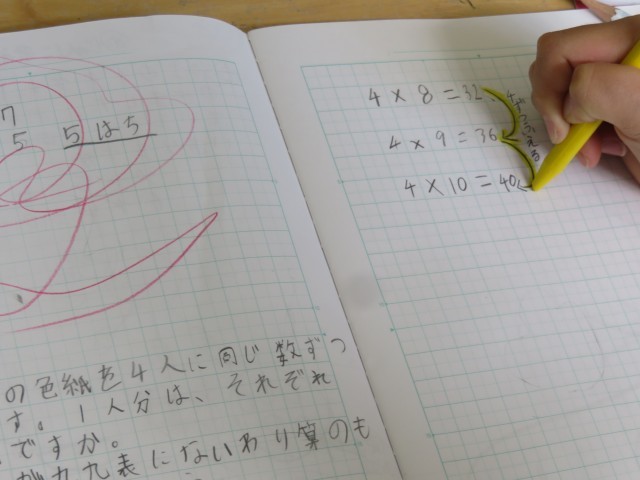 7
5 5はち
の色紙を4人に同じ数ずつ
す。1人分は、それぞれ
ですか。
が九九表にないわり算のも
4×8=32
4×9=36
4×10=40
4ずつふえる